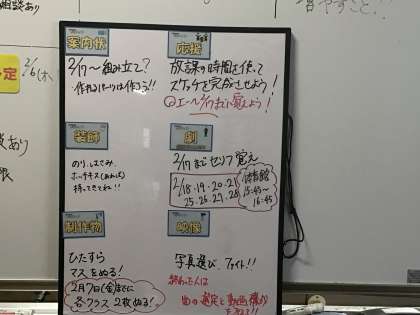 相談あり
増やすこと!!
定
2/6(木)
案内状
2/17~組み立て?
作れるパーツは作ろう!!
応援
放課の時間を使って
スケッチを完成させよう!
エール2/17までに覚えよう!
装飾
のり、はさみ、
ホッチキス(あれば)
持ってきてね!!
劇
2/17までセリフ覚え
2/18・19・20・21
25・26・27・28
体育館
15:45~
16:45
制作物
ひたすら
マスをぬる!
2月7日(金)までに
各クラス2枚ぬる!
映像
写真選び、ファイト!!
終わった人は
曲の選定と動画構成